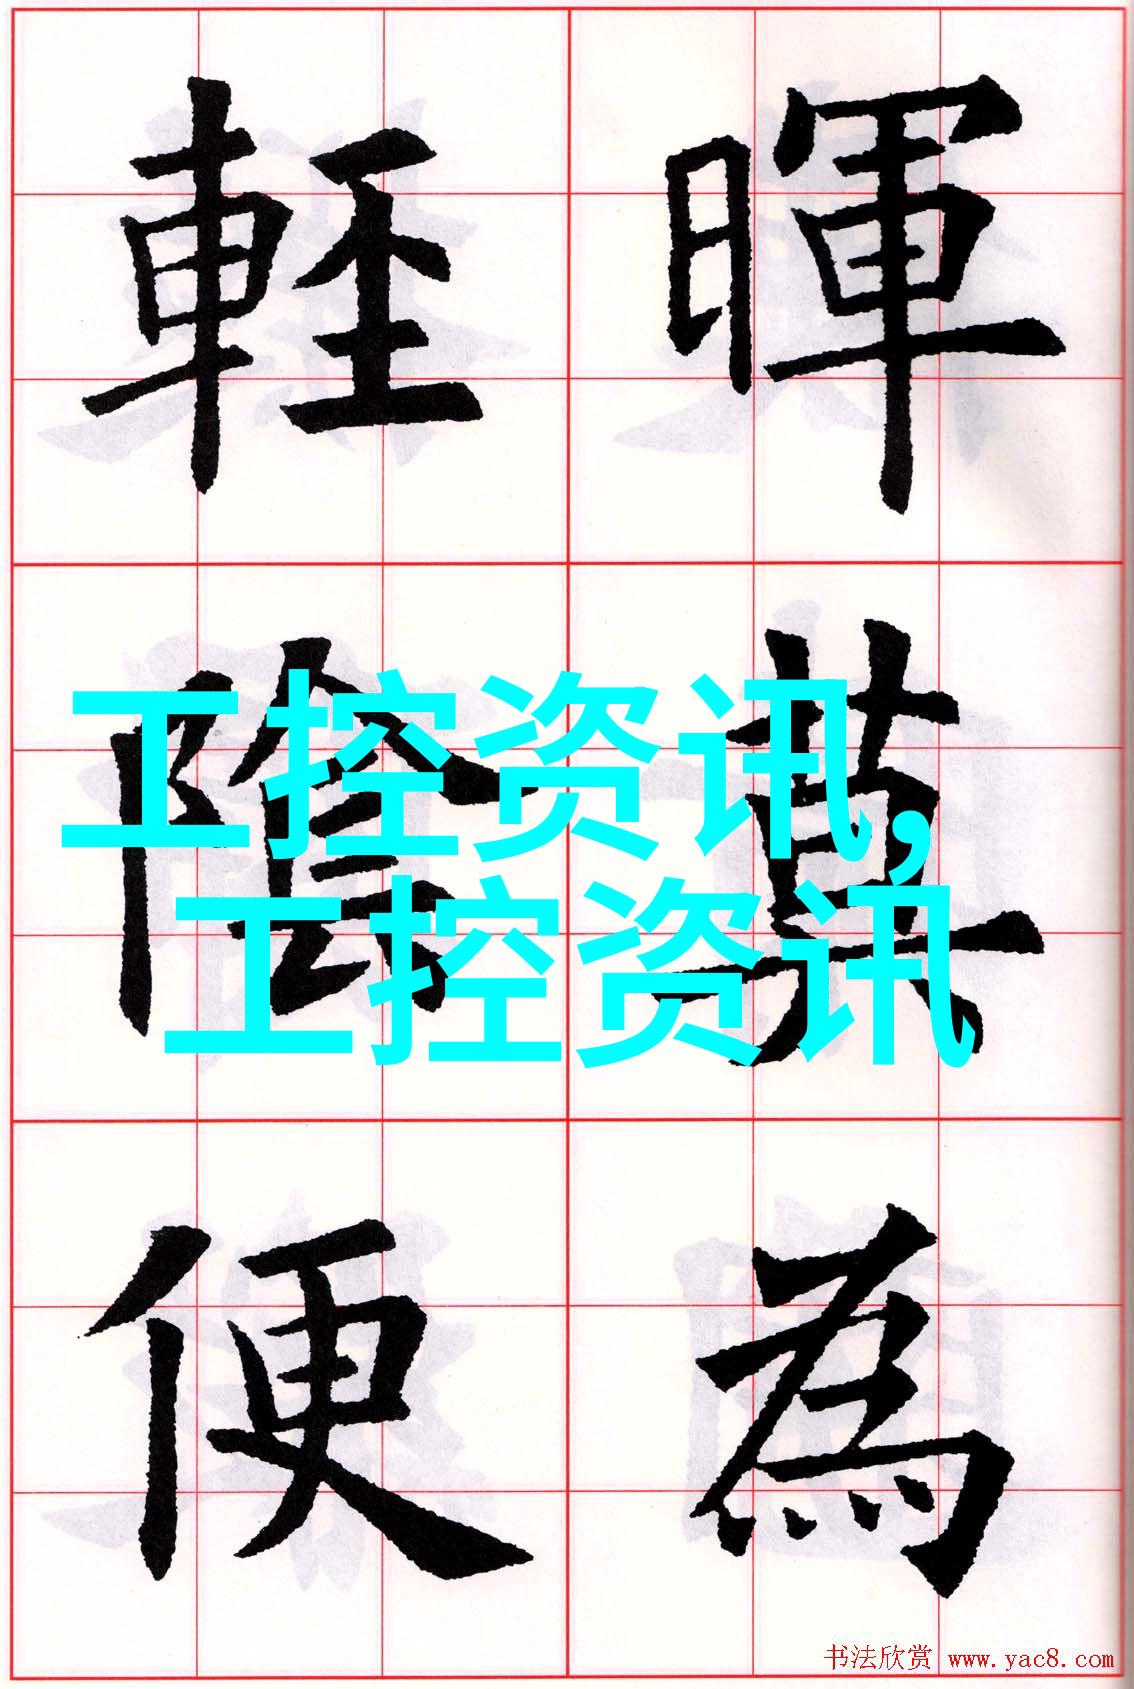 暉莫為
輕陰便
工控资讯,
工控资讯
书法欣赏 www.yac8.com